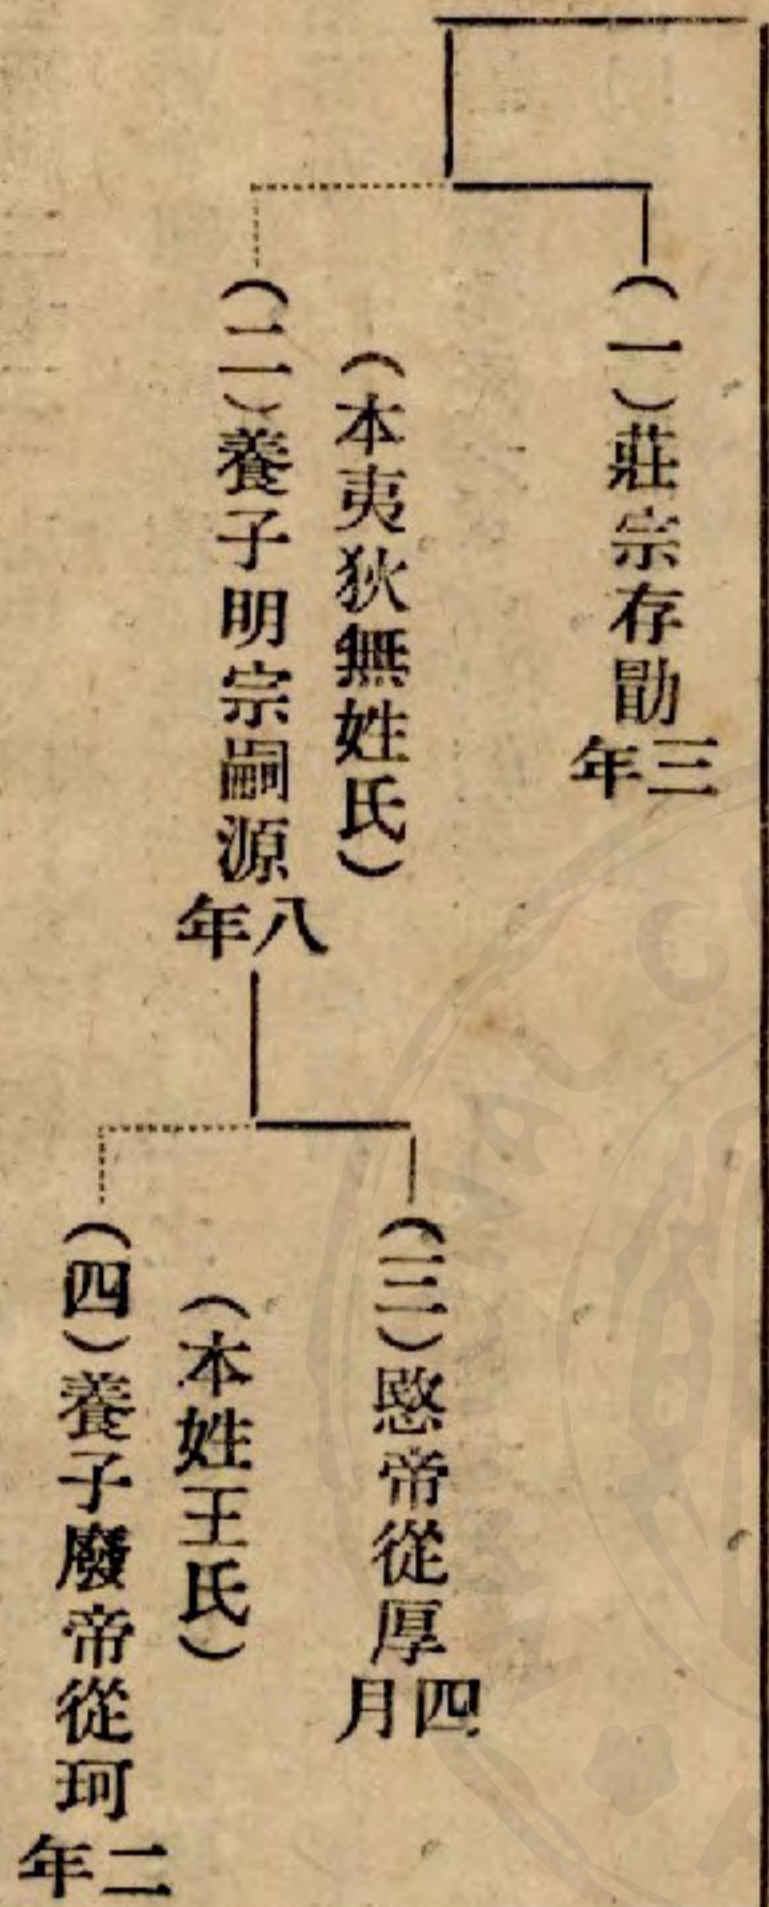 （一）莊宗存勖三年
（本夷狄無姓氏）
（二）養子明宗嗣源八年
（三）愍帝從厚四月
（本姓王氏）
（四）養子廢帝從珂二年